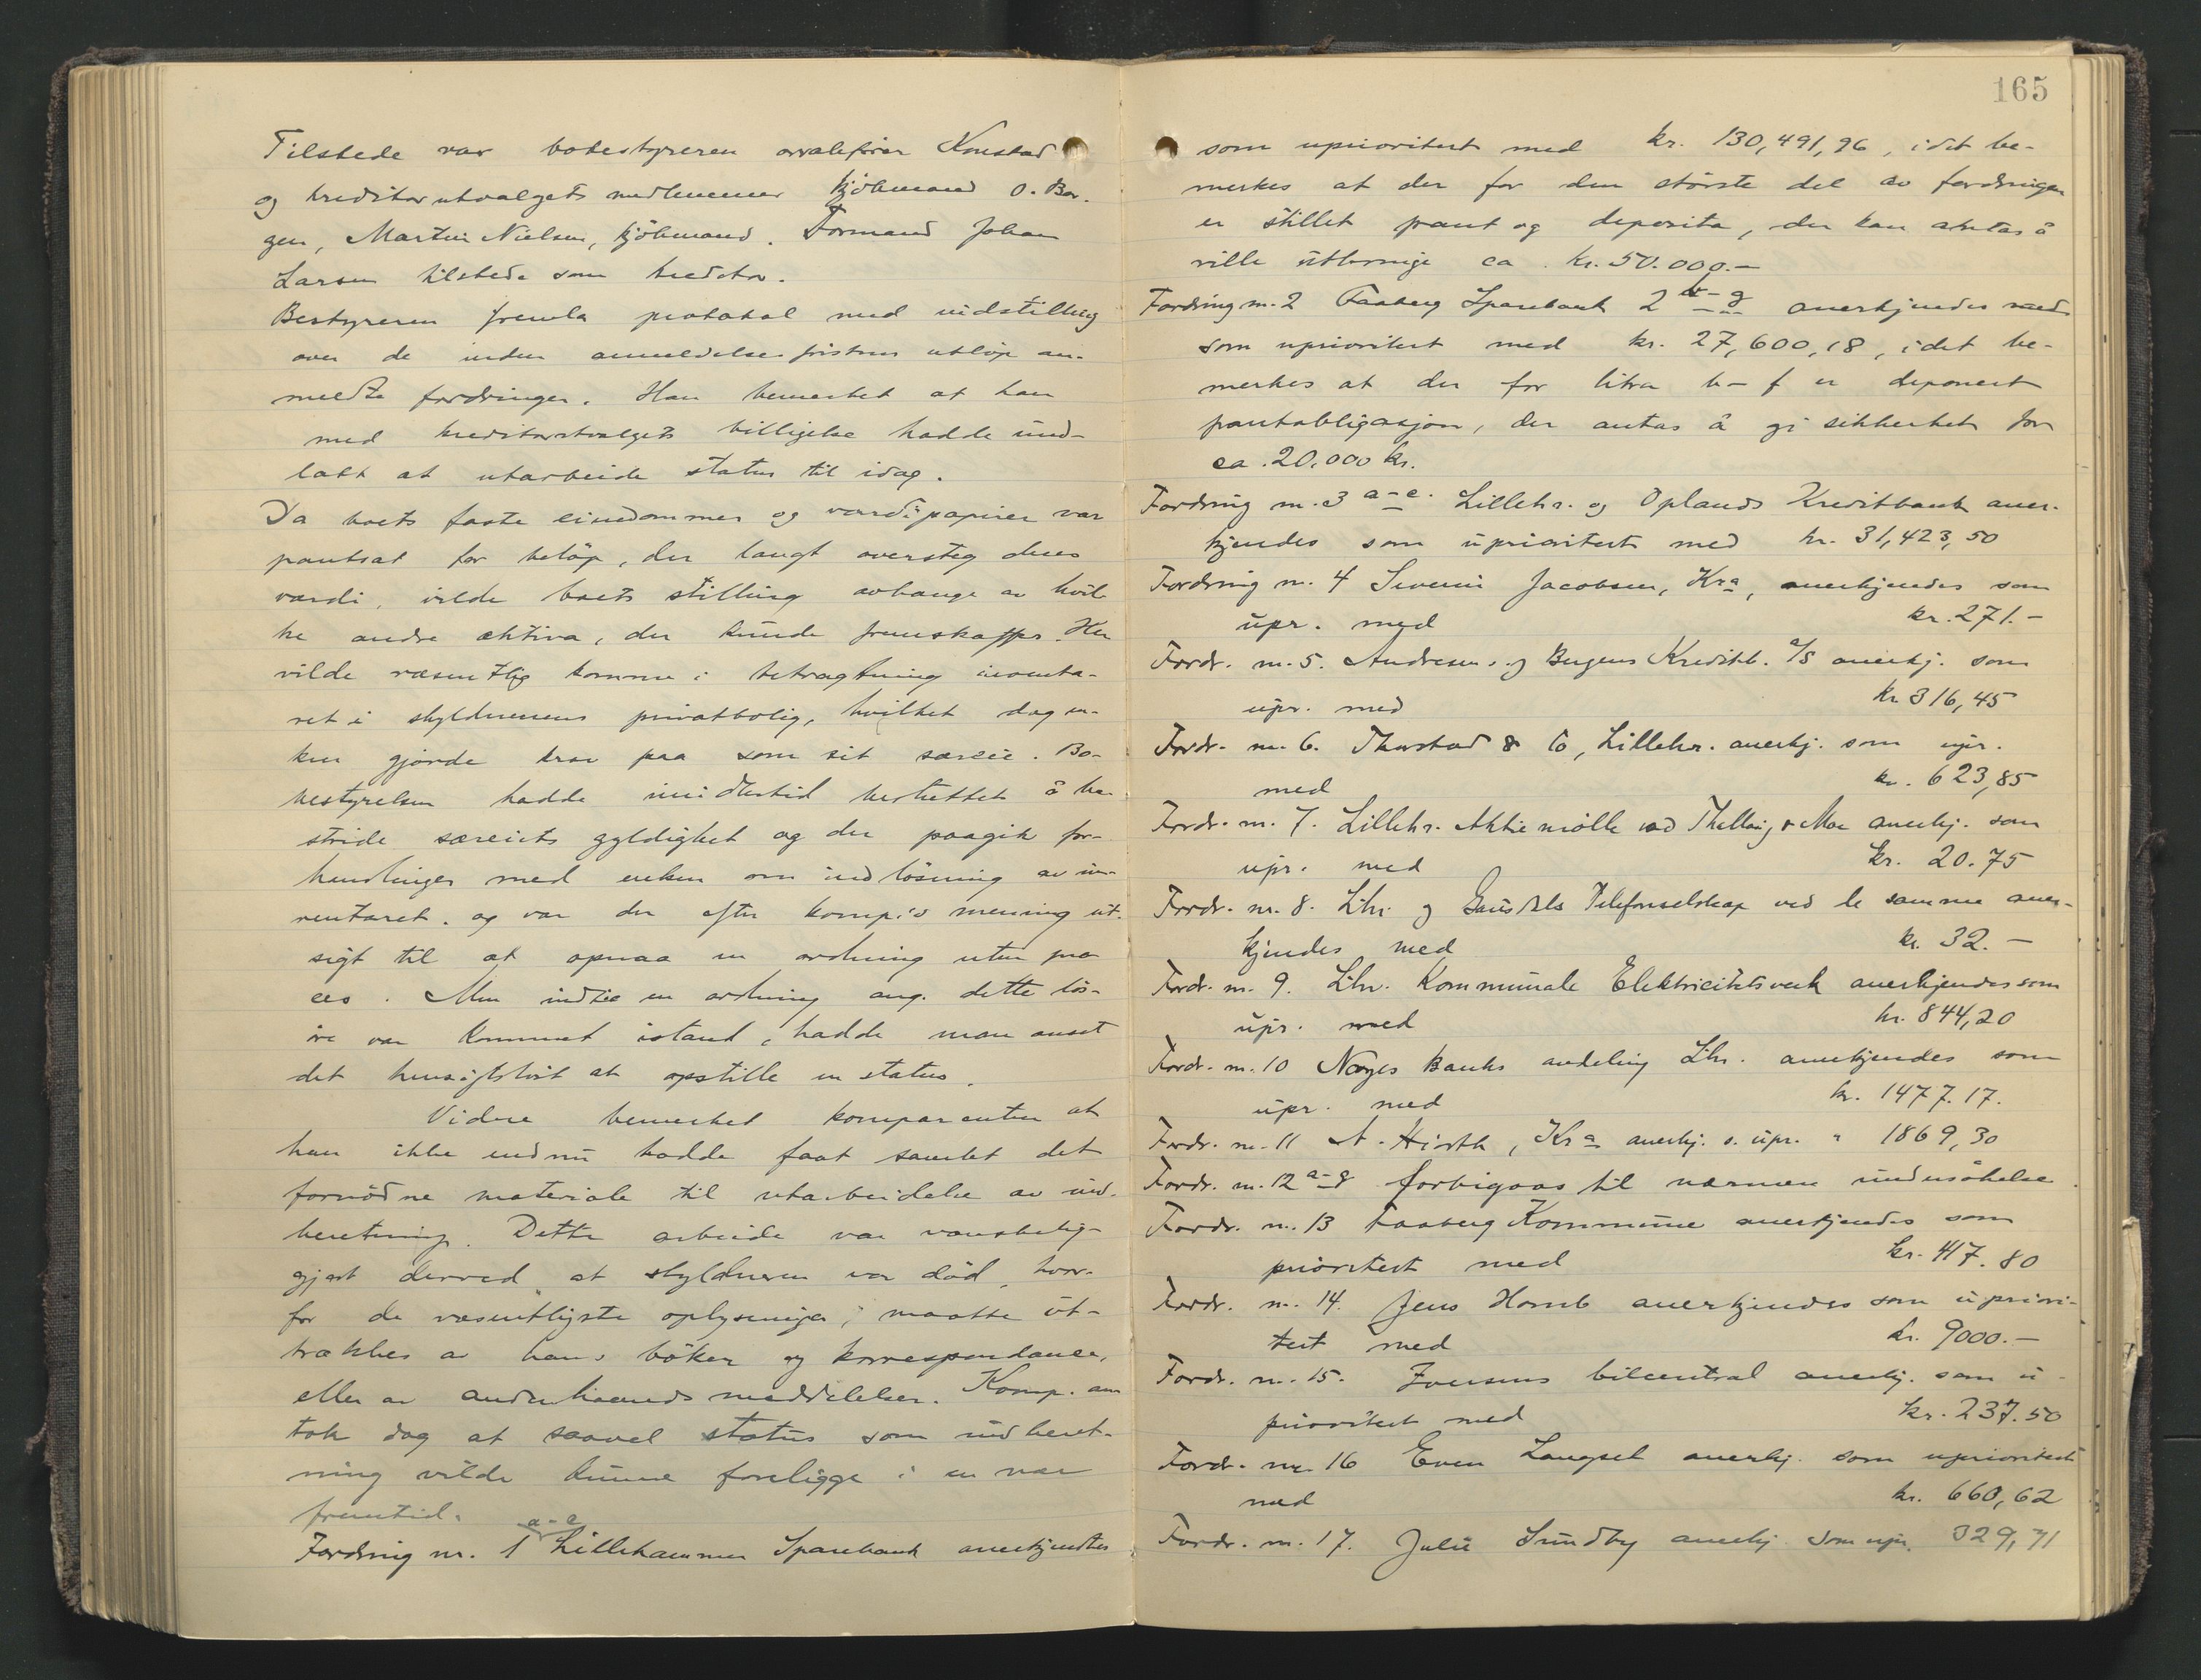 Tilstede var bobestyreren overretssakfører Konstad
og kreditorutvalgets medlemmer kjöbmand O. Bor-
gen, Martin Nielsen, kjöbmand. Formand Johan
Larsen tilstede som kreditor.
Bestyreren fremla protokol med indstilling
over de inden anmeldelsesfristens utlöp an-
meldte fordringer. Han bemerket at han
med kreditorutvalgets billigelse hadde und-
latt at utarbeide status til idag.
Da boets faste eiendommer og værdipapirer var
pantsat for belöp, der langt oversteg deres
værdi, vilde boets stilling avhænge av hvil-
ke andre aktiva, der kunde fremskaffes. Her
vilde væsentlig komme i betragtning inventa-
ret i skyldnerens privatbolig, hvilket dog en-
ken gjorde krav paa som sit særeie. Bo-
bestyrelsen hadde imidlertid besluttet å be-
stride særeiets gyldighet og der paagik for-
handlinger med enken om indlösning av in-
ventaret. og var der efter komp's mening ut-
sigt til at opnaa en ordning uten pro-
ces. Men indtil en ordning ang. dette lös-
öre var kommet istand, hadde man anset
det hensigtslöst at opstille en status.
Videre bemerket komparenten at
han ikke endnu hadde faat samlet det
fornödne materiale til utarbeidelse av ind-
beretning. Dette arbeide var vanskelig-
gjort derved at skyldneren var död, hvor-
for de væsentligste oplysninger maatte ut-
trækkes av hans böker og korrespondance,
eller av andenhaands meddelelser. Komp. an-
tok dog at saavel status som indberet-
ning vilde kunne foreligge i en nær
fremtid.
Fordring nr. 1 a-e Lillehammer Sparebank anerkjendtes
165
som uprioritert med kr. 130,491,96, idet be-
merkes at der for den største del av fordringen
er stillet pant og deposita, der kan antas å
ville utbringe ca. kr. 50.000.-
Fordring nr. 2 Faaberg Sparebank 2 a-g anerkjendes med
som uprioritert med kr. 27,600,18, idet be-
merkes at der for litra b-f er deponert
pantobligasjon, der antas å gi sikkerhet for
ca. 20.000 kr.
Fordring nr. 3 a-c. Lillehr. og Oplands Kreditbank aner-
kjendes som uprioritert med kr. 31,423,50
Fordring nr. 4 Severin Jacobsen, Kra, anerkjendes som
upr. med kr. 271.-
Fordr. nr. 5. Andresens og Bergens Kreditb. A/S anerkj. som
upr. med kr 316,45
Fordr. nr. 6. Thorstad & Co, Lillehr. anerkj. som upr.
med kr. 623,85
Fordr. nr. 7. Lillehr. Aktiemölle ved & Moe anerkj. som
upr. med kr. 20.75
Fordr. nr. 8. Lhr. og Gausdals Telefonselskap ved de samme aner-
kjendes med kr. 32.-
Fordr. nr. 9. Lhr. Kommunale Elektricitetsverk anerkjendes som
upr. med kr. 844,20
Fordr. nr. 10 Norges Banks avdeling Lhr. anerkjendes som
upr. med kr. 1477.17.
Fordr. nr. 11 A. Hiorth, Kra anerkj. s. upr. " 1869,30
Fordr. nr. 12 a-g forbigaas til nærmere undersökelse.
Fordr. nr. 13 Faaberg Kommune anerkjendes som
prioritert med kr. 417.80
Fordr. nr. 14. Jens Homb anerkjendes som upriori-
tert med kr. 9000.-
Fordr. nr. 15. Iversens bilcentral anerkj. som u-
prioritert med kr. 237.50
Fordr. nr. 16 Even Langset anerkj. som uprioritert
med kr. 660,62
Fordr. nr. 17. Julie Sundby anerkj. som upr. 329,71